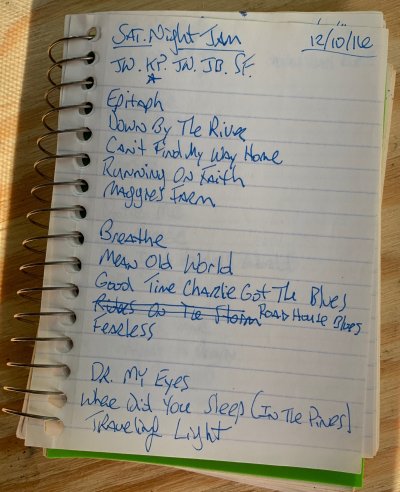 SAT. Night JAM 12/10/16
JW. KP. JW. JB. SF.
Epitaph
Down By The River
Can't Find My Way Home
Running On Faith
Maggies Farm
Breathe
Mean Old World
Good Time Charlie Got The Blues
Riders On The Storm Road House Blues
Fearless
DR. My Eyes
Where Did You Sleep (In The Pines)
Traveling Light